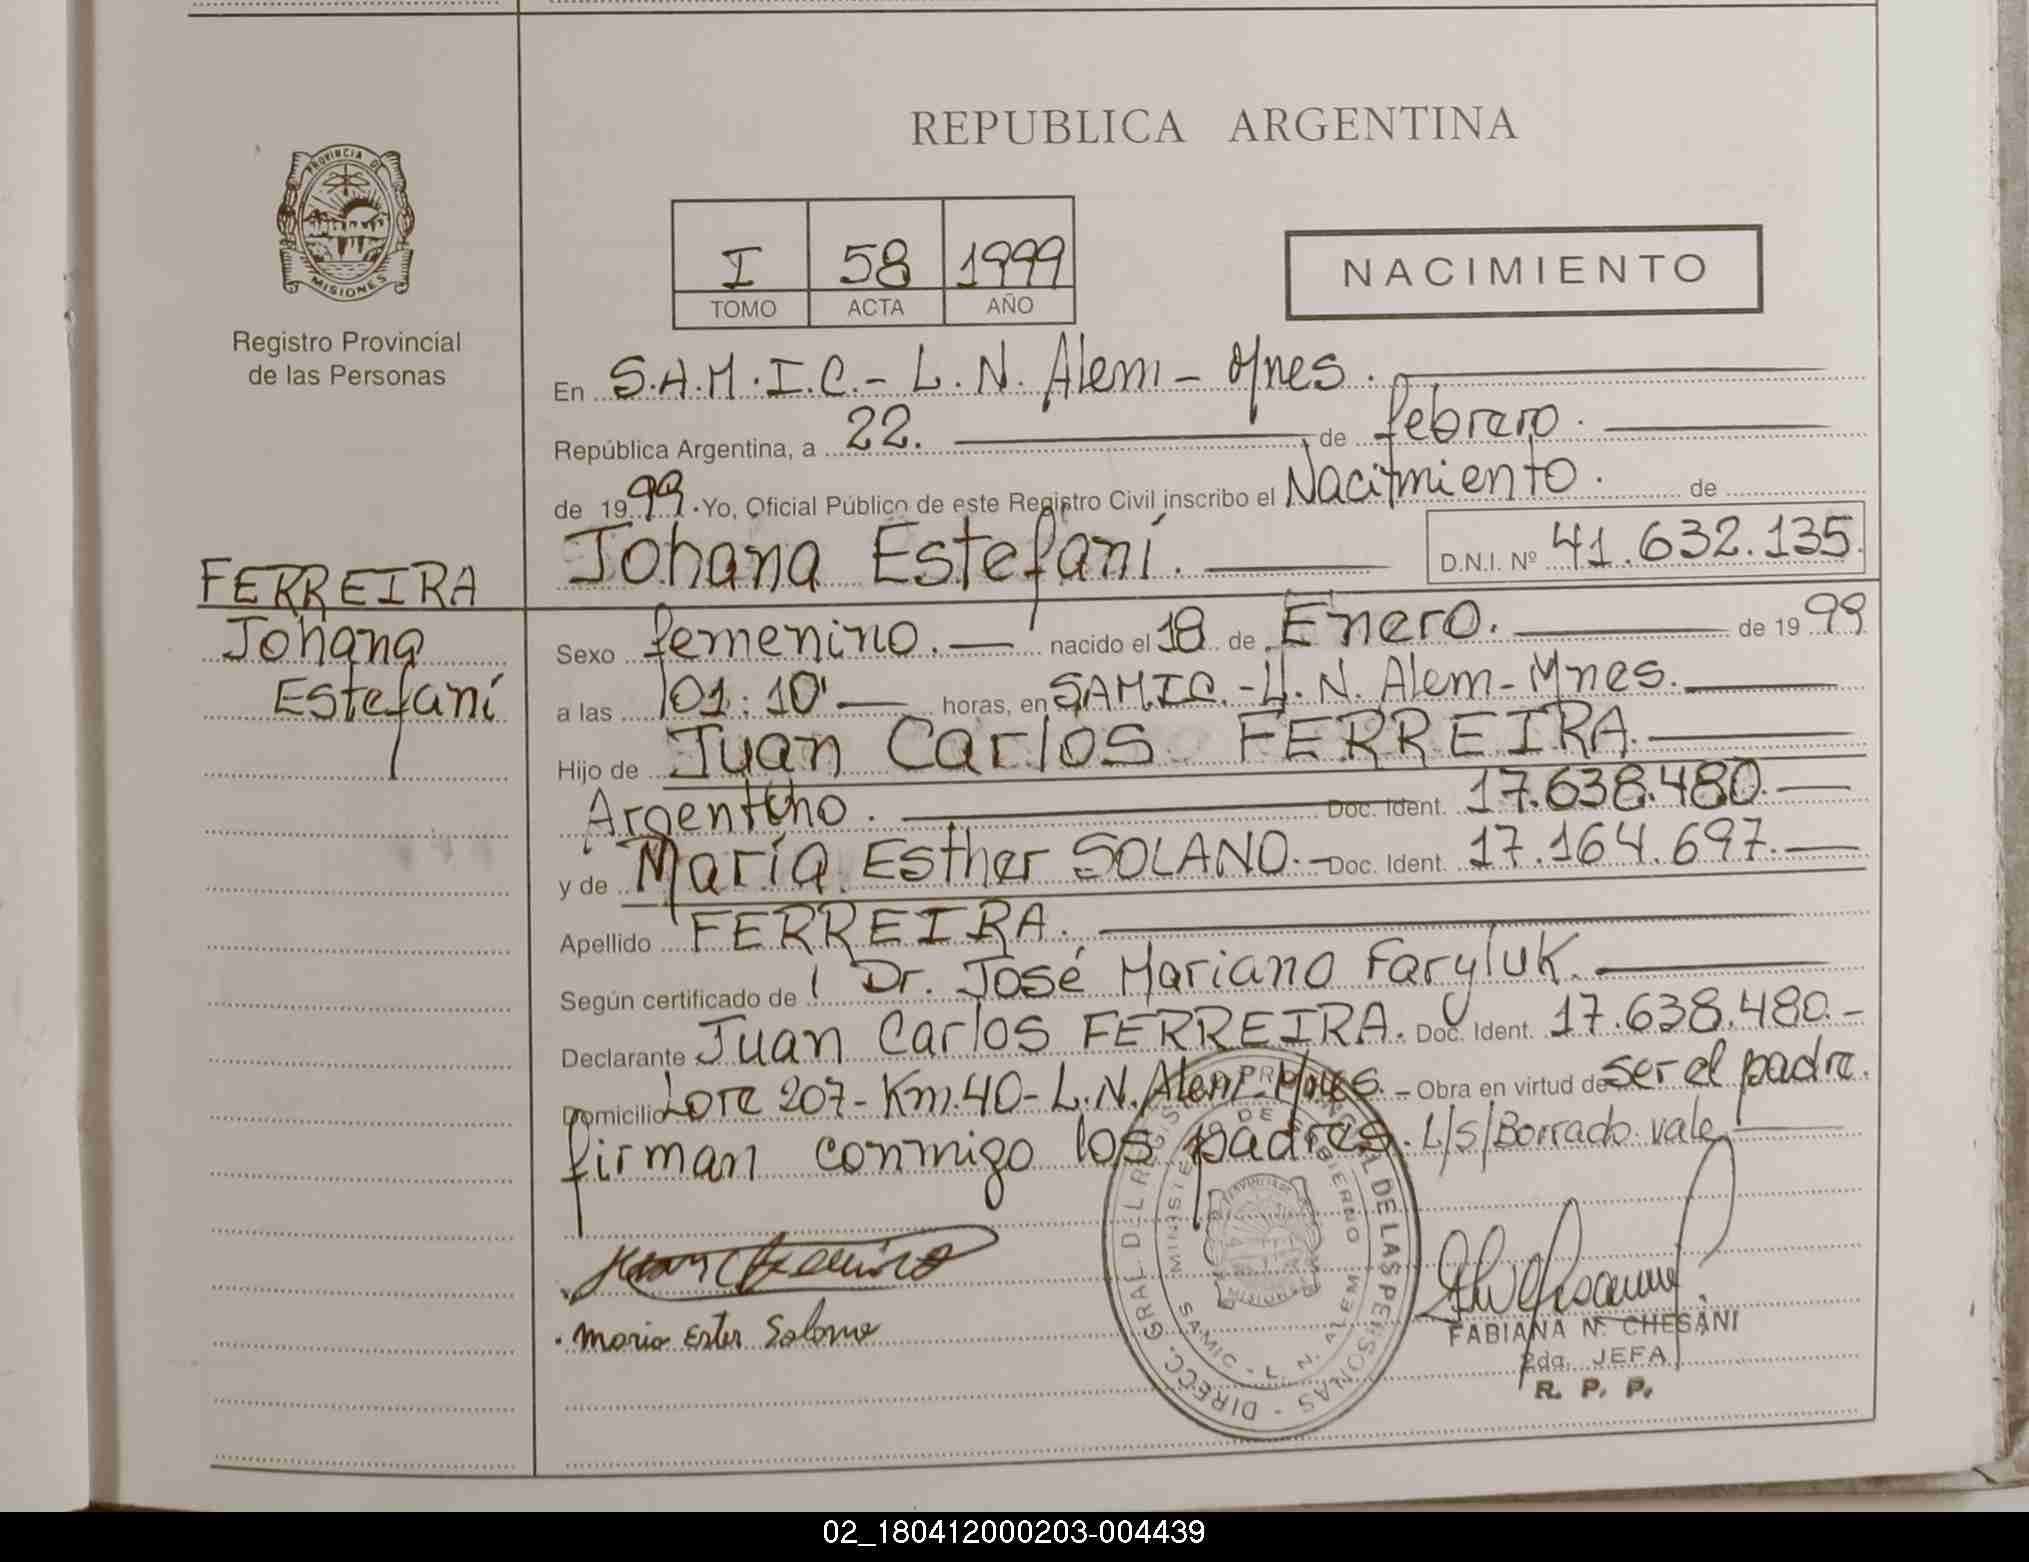 REPUBLICA ARGENTINA
PROVINCIA DE
MISIONES
Registro Provincial
de las Personas
I 58 1999
TOMO ACTA AÑO
NACIMIENTO
En S.A.M.I.C.- L.N. Alem - Mnes.
República Argentina, a 22. de febrero.
de 1999. Yo, Oficial Público de este Registro Civil inscribo el Nacimiento. de
Johana Estefaní. D.N.I. Nº 41.632.135.
FERREIRA
Johana
Estefaní
Sexo femenino. nacido el 18 de Enero. de 1999
a las 01:10' horas, en SAMIC.-L.N. Alem-Mnes.
Hijo de Juan Carlos FERREIRA.
Argentino. Doc. Ident. 17.638.480.
y de María Esther SOLANO. Doc. Ident. 17.164.697.
Apellido FERREIRA.
Según certificado de Dr. José Mariano Faryluk.
Declarante Juan Carlos FERREIRA. Doc. Ident. 17.638.480.-
Domicilio Lote 207-Km.40-L.N. Alem-Mnes. Obra en virtud de ser el padre.
firman conmigo los padres. L/S/Borrado vale
Maria Ester Solano
DIRECC. GRAL. DEL REGISTRO PROVINCIAL DE LAS PERSONAS
MINISTERIO DE GOBIERNO
SAMIC - L. N. ALEM
MISIONES
FABIANA N. CHESANI
2da. JEFA
R. P. P.
02_180412000203-004439